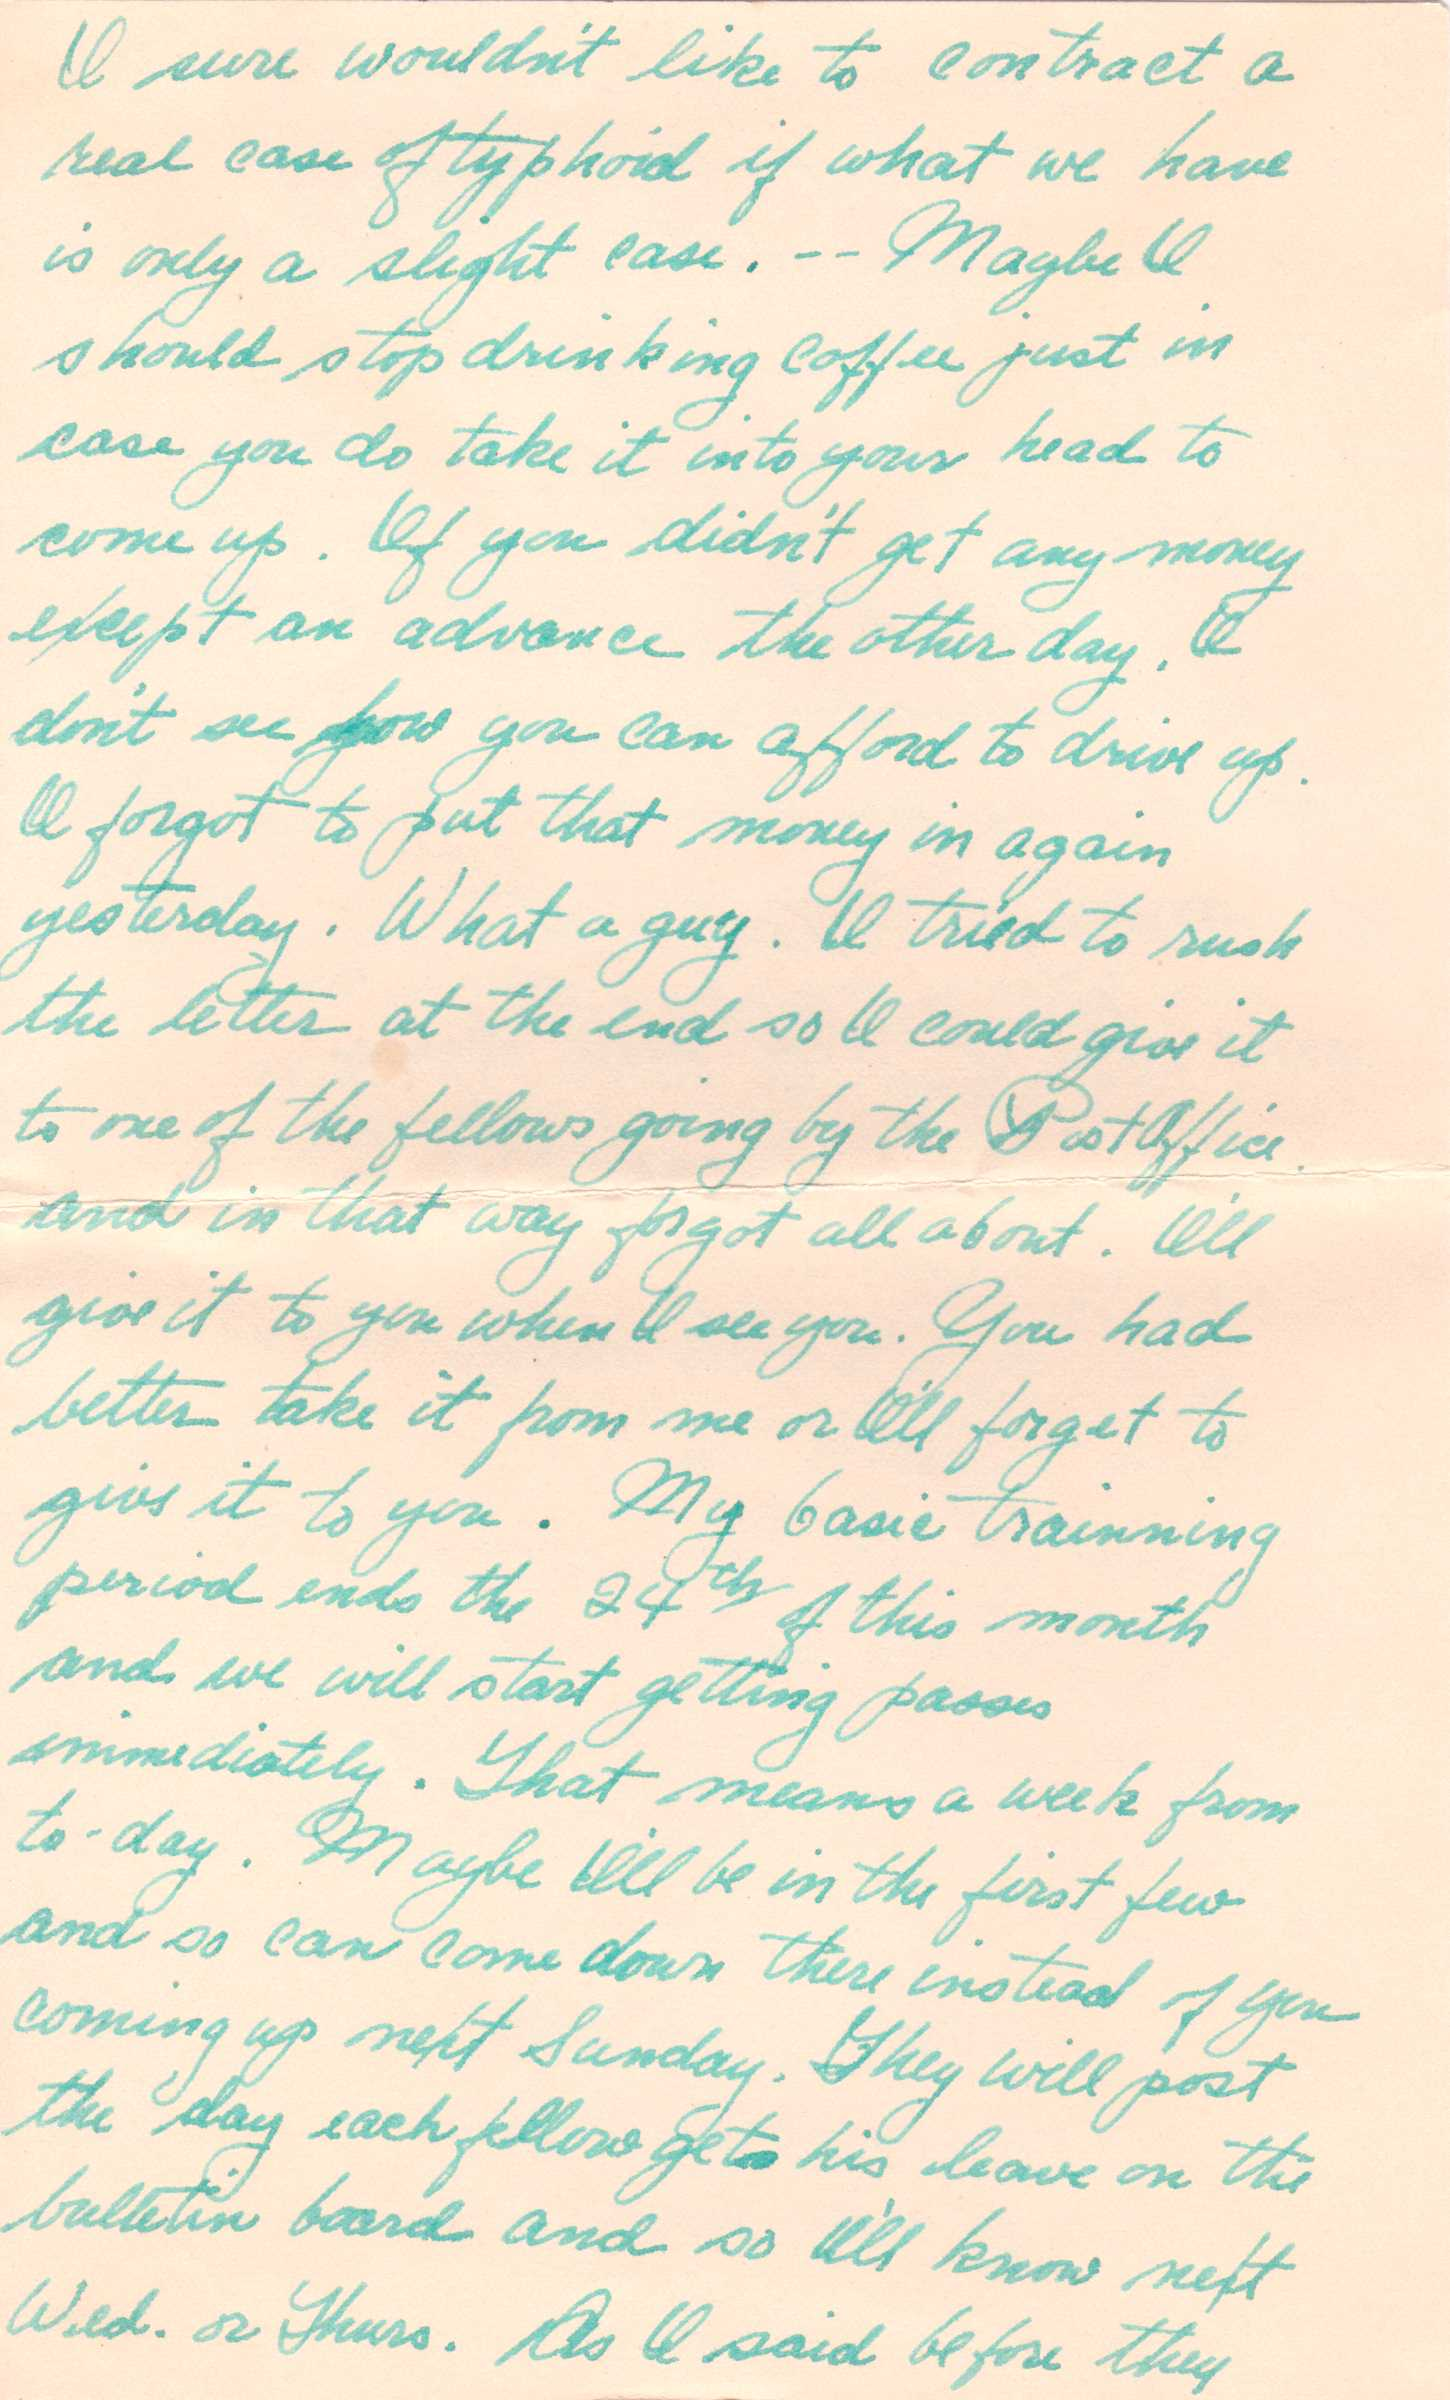 I sure wouldn't like to contract a
real case of typhoid if what we have
is only a slight case. -- Maybe I
should stop drinking coffee just in
case you do take it into your head to
come up. If you didn't get any money
except an advance the other day, I
don't see how you can afford to drive up.
I forgot to put that money in again
yesterday. What a guy. I tried to rush
the letter at the end so I could give it
to one of the fellows going by the Post Office
and in that way forgot all about. I'll
give it to you when I see you. You had
better take it from me or I'll forget to
give it to you. My basic trainning
period ends the 24th of this month
and we will start getting passes
immediately. That means a week from
to-day. Maybe I'll be in the first few
and so can come down there instead of you
coming up next Sunday. They will post
the day each fellow gets his leave on the
bulletin board and so I'll know next
Wed. or Thurs. As I said before they